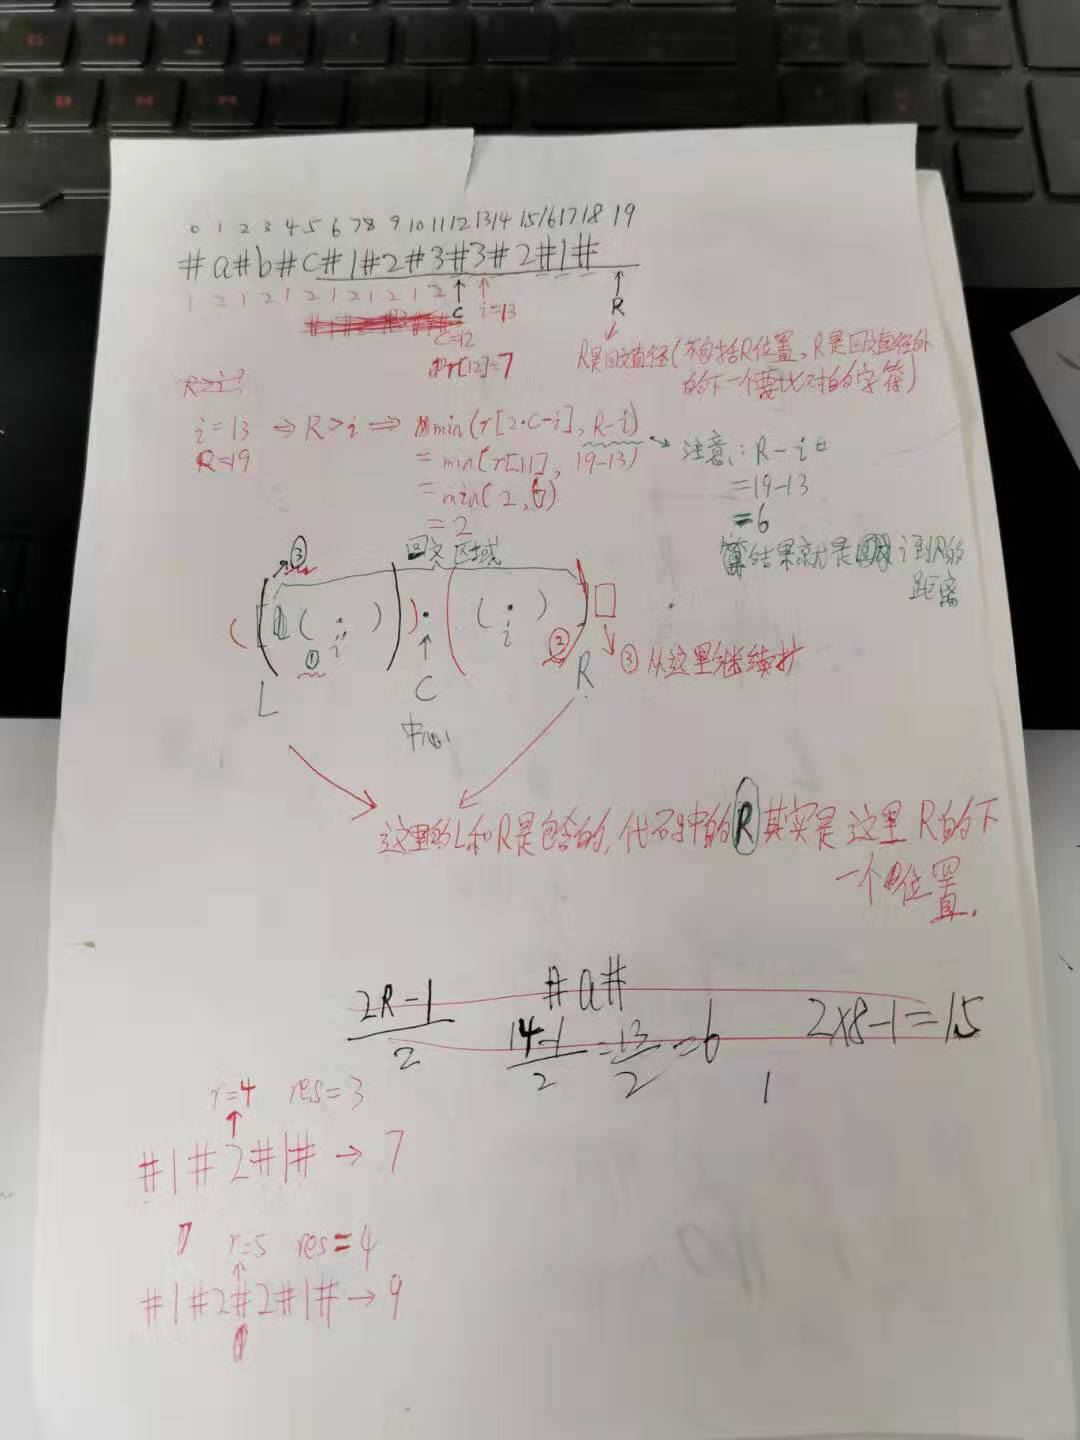 0 1 2 3 4 5 6 7 8 9 10 11 12 13 14 15 16 17 18 19
#a#b#c#1#2#3#3#2#1#
1 2 1 2 1 2 1 2 1 2 1 2
C i=13 R
C=12
r[12]=7
R是回文直径(不包括R位置,R是回文直径外
的下一个要比对的字符)
R>i?
i=13 → R>i ⇒ min(r[2·C-i], R-i)
R=19 = min(r[11], 19-13) → 注意: R-i
= min(2,6) =19-13
= 2 =6
结果就是 i到R的
距离
③ 回文区域
( [ ( i' ) ) · ( ( i ) ) □
① ② ③从这里继续扩
L C R
中心
这里的L和R是包含的,代码中的R其实是这里R的下
一个位置.
#a#
2R-1/2 14-1/2 = 13/2 = 6 2×8-1=15
1
r=4 res=3
#1#2#1# → 7
r=5 res=4
#1#2#2#1# → 9